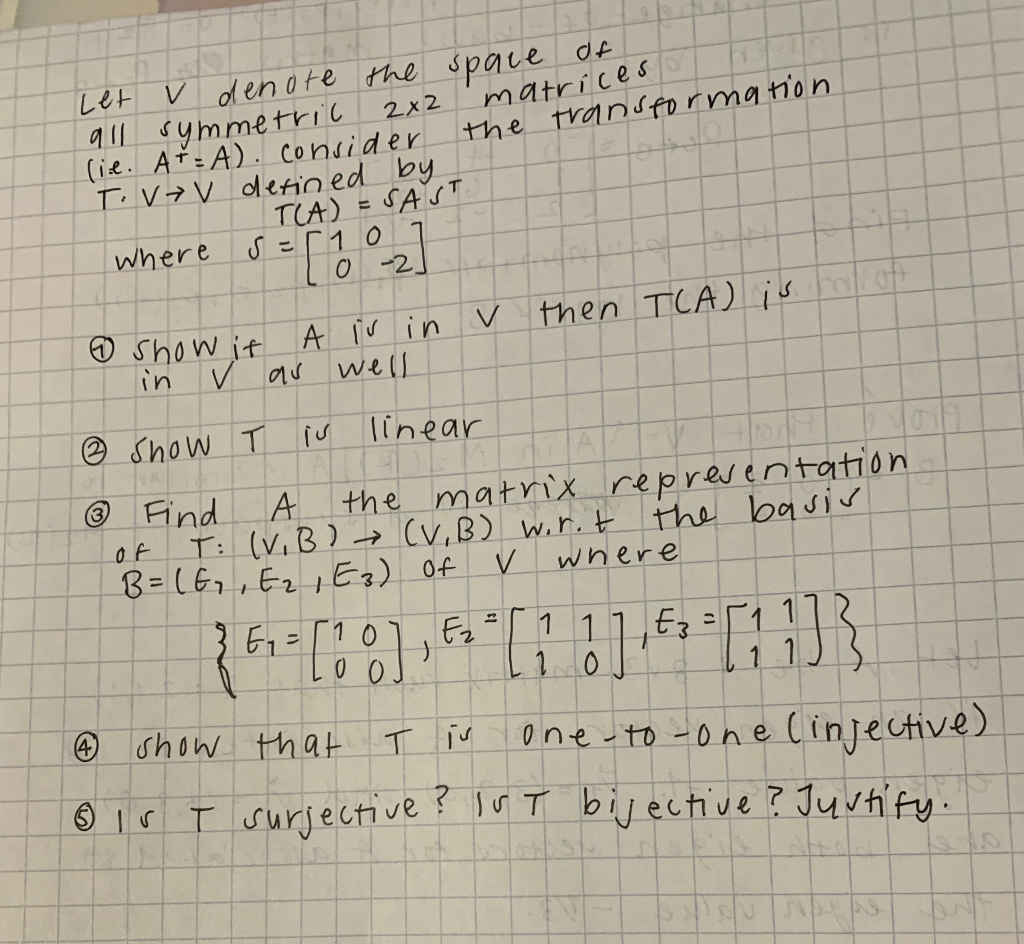 Let V denote the space of
all symmetric 2x2 matrices
(i.e. A^T = A). consider the transformation
T: V → V defined by
T(A) = SAS^T
where S = [1 0
0 -2]
① show if A is in V then T(A) is
in V as well
② show T is linear
③ Find A the matrix representation
of T: (V,B) → (V,B) w.r.t the basis
B = (E1, E2, E3) of V where
{ E1 = [1 0
0 0], E2 = [1 1
1 0], E3 = [1 1
1 1] }
④ show that T is one-to-one (injective)
⑤ Is T surjective? Is T bijective? Justify.